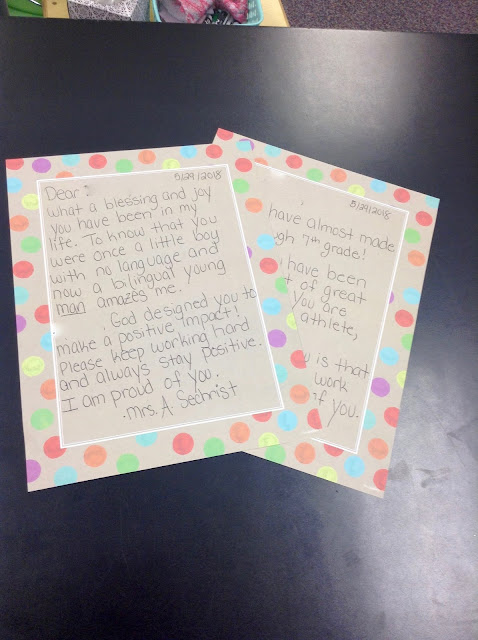 5/29/2018
Dear
What a blessing and joy
you have been in my
life. To know that you
were once a little boy
with no language and
now a bilingual young
man amazes me.
God designed you to
make a positive impact!
Please keep working hard
and always stay positive.
I am proud of you.
-Mrs. A Sechrist
5/29/2018
have almost made
gh 7th grade!
have been
t of great
you are
athlete,
is that
work
of you.